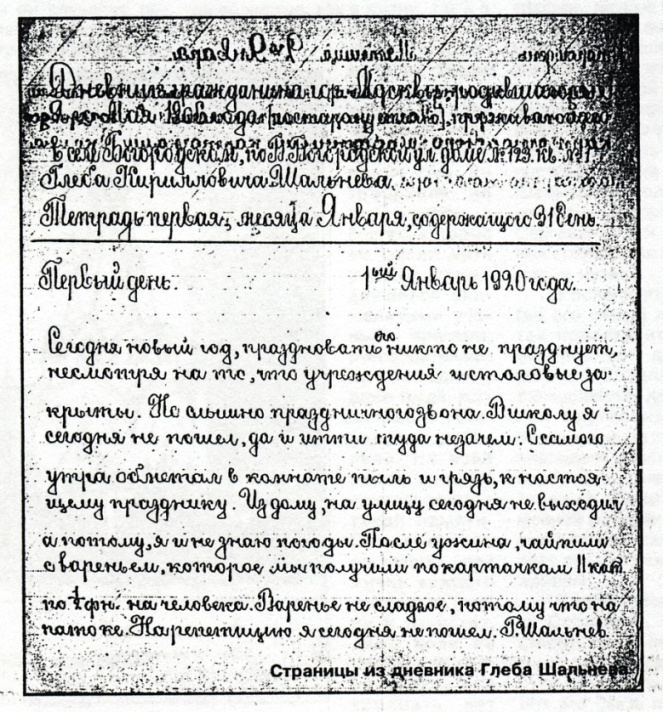 Дневник гражданина гор. Москвы, родившагося
Мая 1906 года [по старому стилю], проживающего
в селе Богородском, по В. Богородской ул. доме №123. кв. №1
Глеба Кирилловича Шальнева
Тетрадь первая, месяца Января, содержащого 31 день.
Первый день. 1ый Январь 1920 года.
Сегодня новый год, праздновать его никто не празднует,
несмотря на то, что учреждения и столовые за-
крыты. Не слышно праздничного звона. В школу я
сегодня не пошел, да и итти туда незачем. С самого
утра обметал в комнате пыль и грязь, к настоя-
щему празднику. Из дому, на улицу сегодня не выходил
а потому, я и не знаю погоды. После ужина, чай пили
с вареньем, которое мы получили по карточкам II кат.
по ½ фн. на человека. Варенье не сладкое, потому что на
патоке. На репетицию я сегодня не пошел. Г. Шальнев
Страницы из дневника Глеба Шальнева